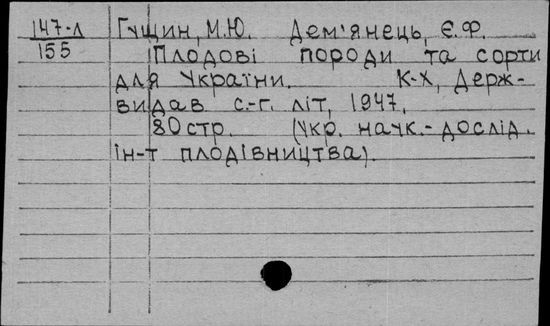 147-л Гущин, М.Ю. Дем'янець, Є.Ф.
155 Плодові породи та сорти
для України. К-Х, Держ-
видав с.-г. літ, 1947,
80 стр. (Укр. наук.-дослід.
ін-т плодівництва).